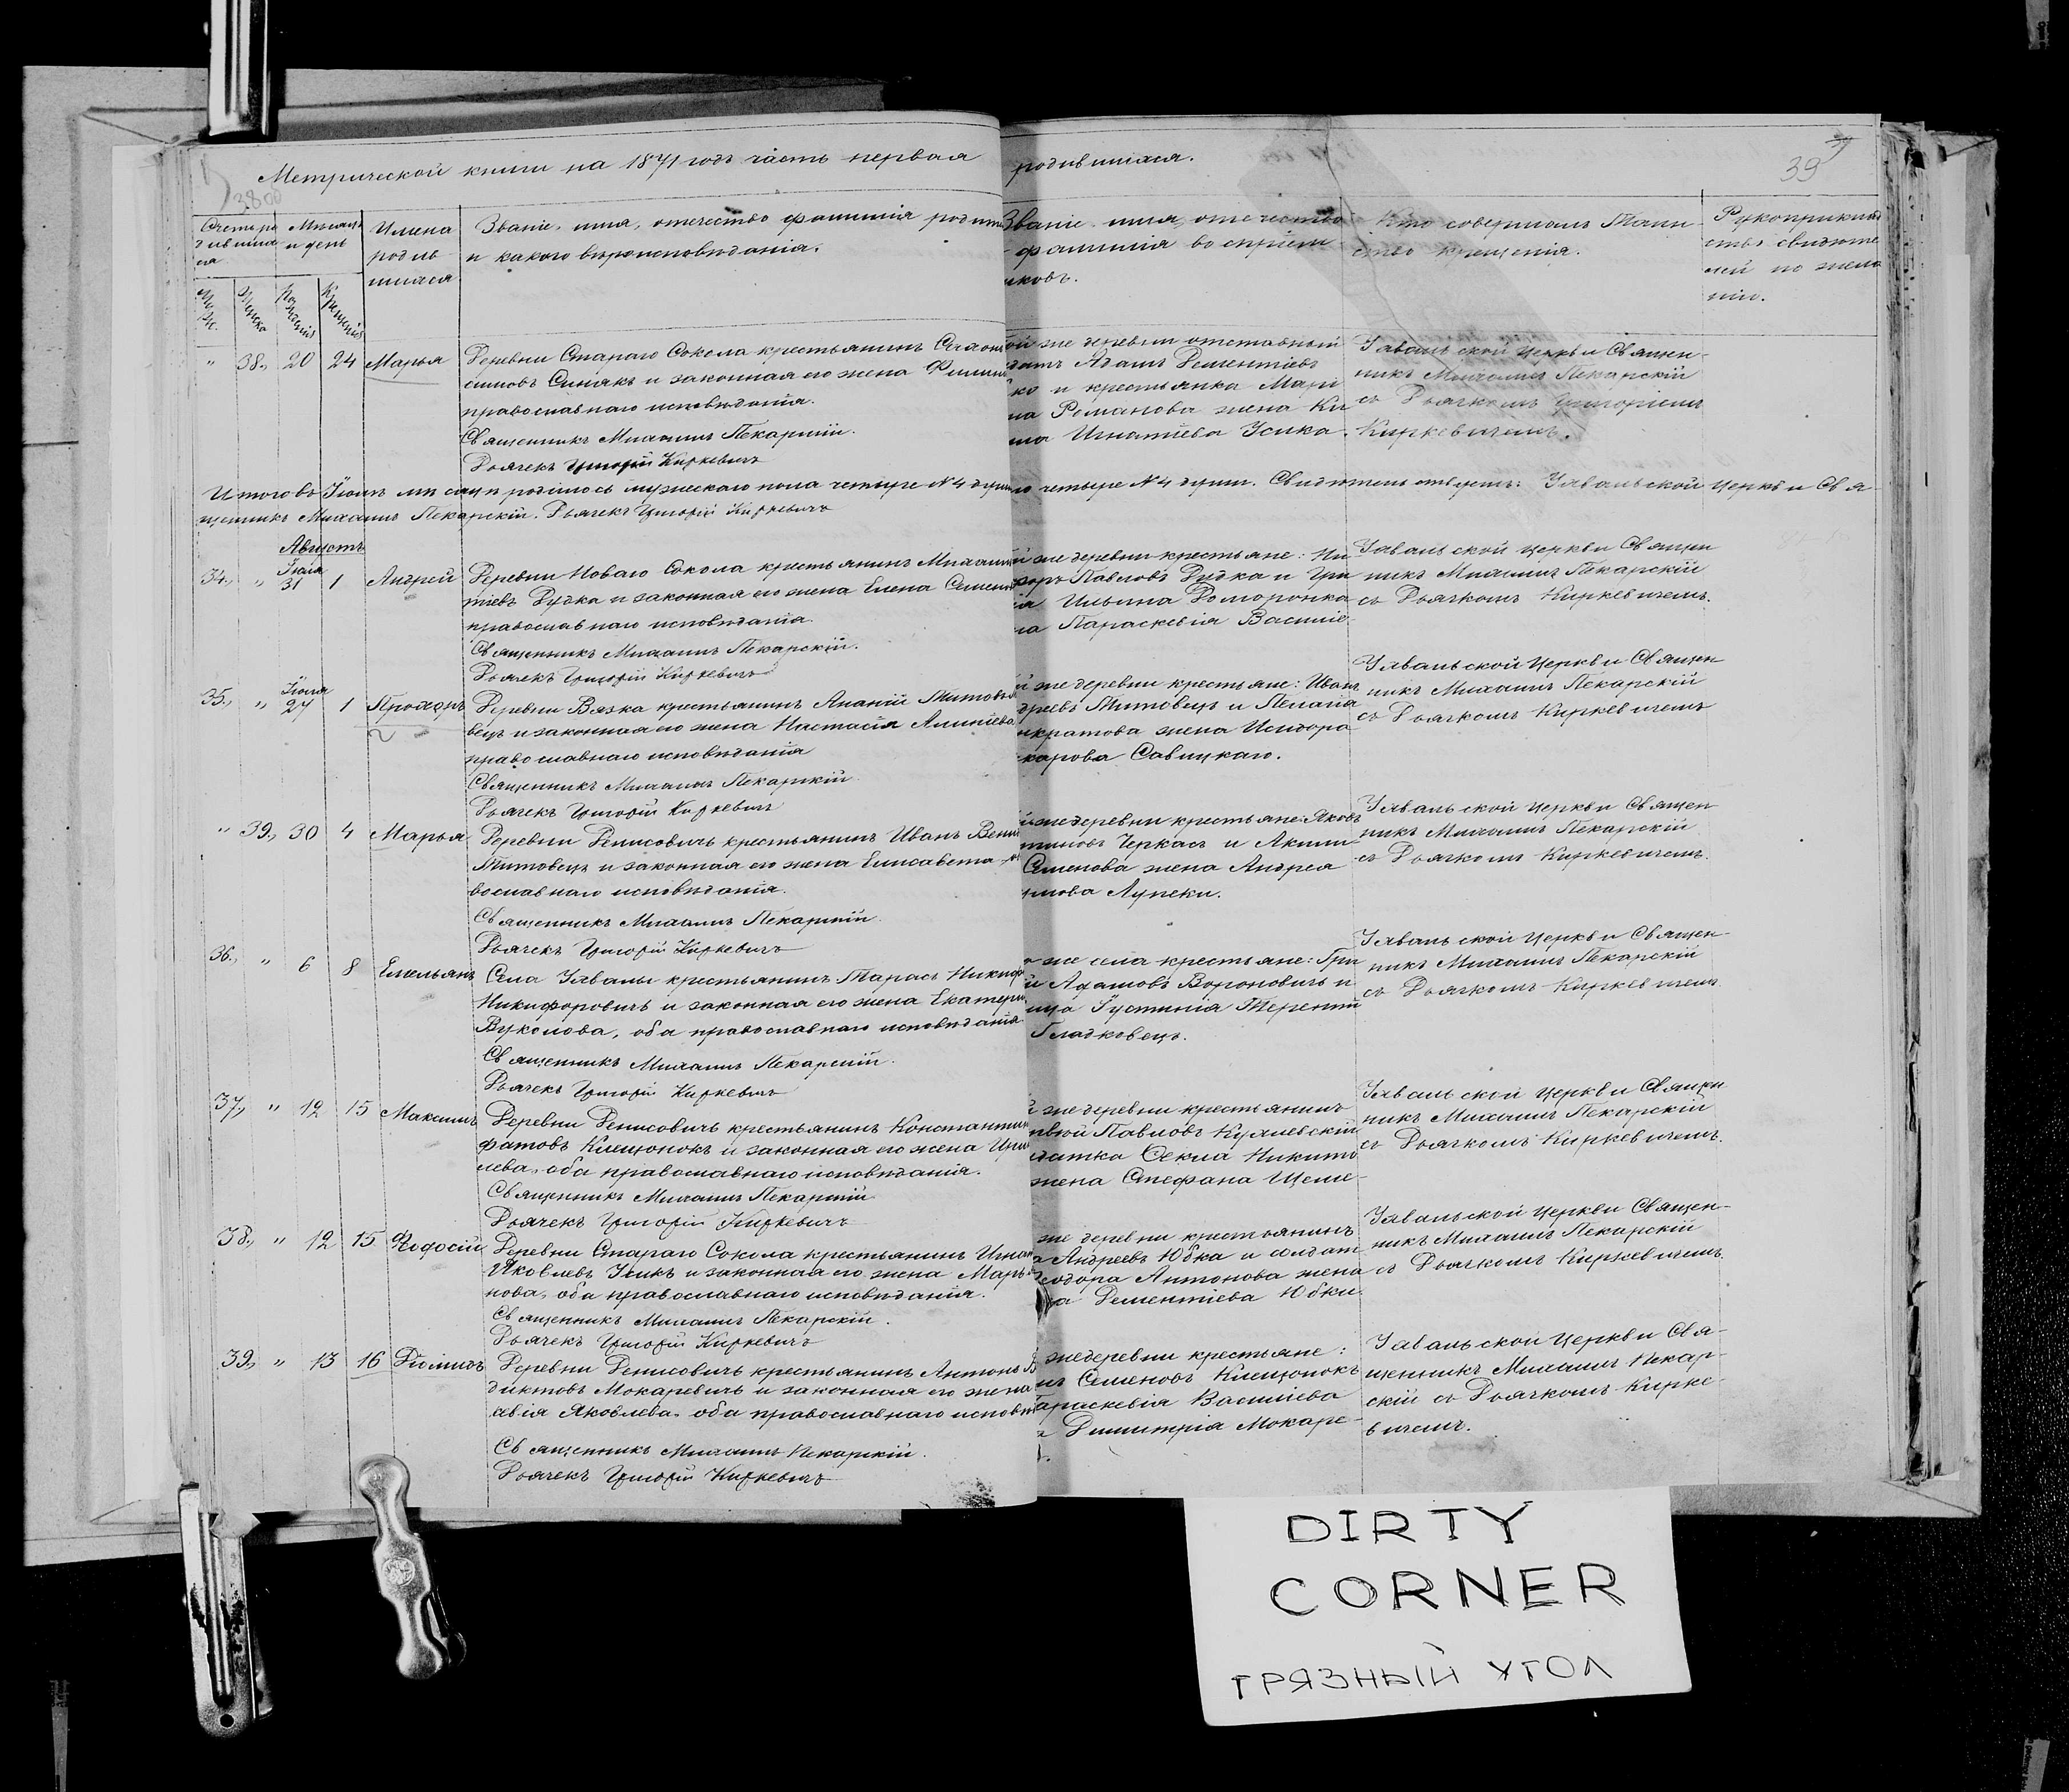 Метрической книги на 1871 годъ часть первая родившіяся.
39
Счетъ ро
дивших
ся
Мѣсяцъ
и день
Имена
родив
шихся
Званіе, имя, отчество фамилія родит
и какого вѣроисповѣданія.
Званіе имя, отчество
фамилія воспріем
никовъ.
Кто совершалъ Таин-
ство крещенія.
Рукоприклад
ство свидѣте
лей по жела
нію.
" 38., 20 24 Марья
Деревни Стараго Сокола крестьянинъ
симовъ Синякъ и законная его жена
православнаго исповѣданія.
Священникъ Михаилъ Пекарскій.
Дьячекъ Григорій Киркевичъ
ой же деревни отставный
датъ Адамъ Дементіевъ
ко и крестьянка Марі
на Романова жена Ки
ма Игнатіева Усика.
Уявальской церкви Священ-
никъ Михаилъ Пекарскій
съ Дьячкомъ Григоріемъ
Киркевичемъ.
Итого въ Іюлѣ мѣсяцѣ родилось мужескаго пола четыре №4 души
но четыре №4 души. Свидѣтельствуетъ: Уявальской церкви Свя-
щенникъ Михаилъ Пекарскій. Дьячекъ Григорій Киркевичъ
Августъ
34., " Іюля 31 1 Андрей
Деревни Новаго Сокола крестьянинъ Михаилъ
тіевъ Дудка и законная его жена Елена Семен
православнаго исповѣданія.
Священникъ Михаилъ Пекарскій.
Дьячекъ Григорій Киркевичъ
й же деревни крестьяне: Ни
форъ Павловъ Дудка и Гри
ія Ильина Доморонка
на Параскевія Василіе
Уявальской церкви Священ
никъ Михаилъ Пекарскій
съ Дьячкомъ Киркевичемъ.
35., " Іюля 27 1 Прохоръ
Деревни Вязка крестьянинъ Ананій Митов
вецъ и законная его жена Настасія
православнаго исповѣданія
Священникъ Михаилъ Пекарскій
Дьячекъ Григорій Киркевичъ
й же деревни крестьяне: Иванъ
дреевъ Митовецъ и Пелагія
нкратова жена Исидора
карова Савицкаго.
Уявальской церкви Священ
никъ Михаилъ Пекарскій
съ Дьячкомъ Киркевичемъ
" 39., 30 4 Марья
Деревни Денисовичъ крестьянинъ Иванъ
Митовецъ и законная его жена Елисавета
вославнаго исповѣданія.
Священникъ Михаилъ Пекарскій.
Дьячекъ Григорій Киркевичъ
же деревни крестьяне: Яковъ
тиновъ Черкасъ и Акили
Семенова жена Андрея
Лупеки.
Уявальской церкви Священ
никъ Михаилъ Пекарскій
съ Дьячкомъ Киркевичемъ.
36., " 6 8 Емельянъ
Села Уявалы крестьянинъ Тарасъ Никиф
Никифоровичъ и законная его жена Екатери
Вуколова, оба православнаго исповѣданія
Священникъ Михаилъ Пекарскій.
Дьячекъ Григорій Киркевичъ
же села крестьяне: Гри
й Адамовъ Вороновичъ и
ица Густинія Терентій
Гладковецъ.
Уявальской церкви Священ-
никъ Михаилъ Пекарскій
съ Дьячкомъ Киркевичемъ
37., " 12 15 Максимъ
Деревни Денисовичъ крестьянинъ Константи
фатовъ Клещонокъ и законная его жена Ири
лева, оба православнаго исповѣданія.
Священникъ Михаилъ Пекарскій
Дьячекъ Григорій Киркевичъ
й же деревни крестьянинъ
твѣй Павловъ Кумлевскій
датка Ѳекла Никито
жена Стефана Щеме-
Уявальской церкви Священ
никъ Михаилъ Пекарскій
съ Дьячкомъ Киркевичемъ.
38., " 12 15 Ѳеодосій
Деревни Стараго Сокола крестьянинъ Игна
Яковлевъ Усикъ и законная его жена Марь
нова, оба православнаго исповѣданія.
Священникъ Михаилъ Пекарскій.
Дьячекъ Григорій Киркевичъ
же деревни крестьянинъ
Андреевъ Юбка и солдат
еодора Антонова жена
ра Дементіева Юбки.
Уявальской церкви Священ-
никъ Михаилъ Пекарскій
съ Дьячкомъ Киркевичемъ.
39., " 13 16 Діомидъ
Деревни Денисовичъ крестьянинъ Антонъ
диктовъ Мокаревичъ и законная его жена
авія Яковлева. оба православнаго исповѣ
Священникъ Михаилъ Пекарскій.
Дьячекъ Григорій Киркевичъ
же деревни крестьяне:
нъ Семеновъ Клещонокъ
араскевія Васильева
Димитрія Мокаре-
Уявальской церкви Свя-
щенникъ Михаилъ Пекар-
скій съ Дьячкомъ Кирке-
вичемъ.
DIRTY
CORNER
ГРЯЗНЫЙ УГОЛ